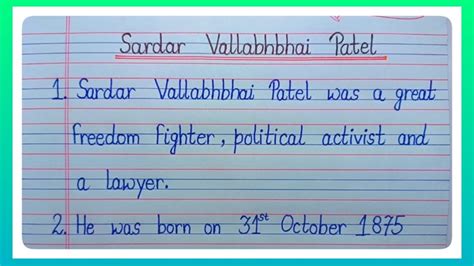 Sardar Vallabhbhai Patel
1. Sardar Vallabhbhai Patel was a great
freedom fighter, political activist and
a lawyer.
2. He was born on 31st October 1875